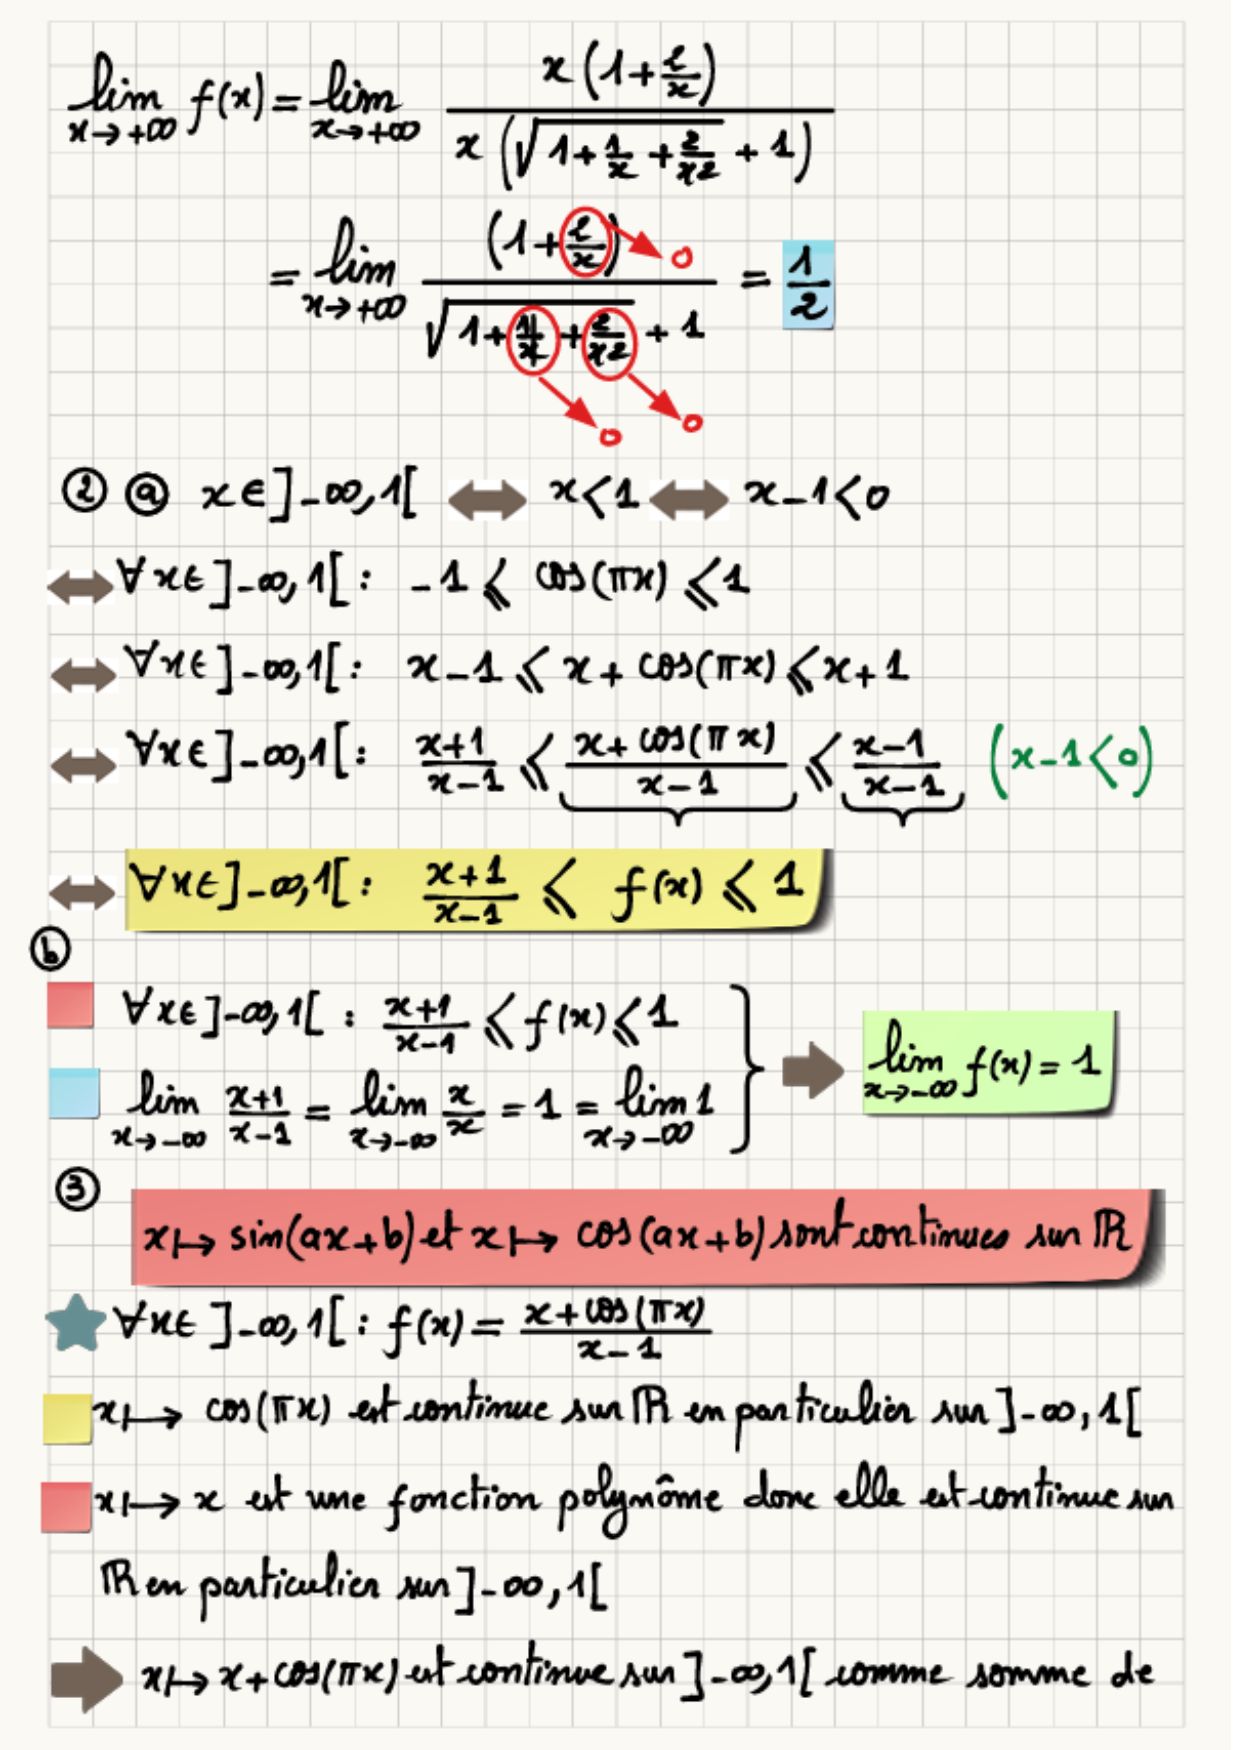 lim_{x→+∞} f(x) = lim_{x→+∞} x(1+2/x) / x(√(1+1/x+2/x2) + 1)
= lim_{x→+∞} (1+2/x) / (√(1+1/x+2/x2) + 1) = 1/2
0
0 0
② ⓐ x∈]-∞,1[ ⟺ x<1 ⟺ x-1<0
⟺ ∀x∈]-∞,1[ : -1 ⩽ cos(πx) ⩽ 1
⟺ ∀x∈]-∞,1[ : x-1 ⩽ x+cos(πx) ⩽ x+1
⟺ ∀x∈]-∞,1[ : (x+1)/(x-1) ⩽ (x+cos(πx))/(x-1) ⩽ (x-1)/(x-1) (x-1<0)
⟺ ∀x∈]-∞,1[ : (x+1)/(x-1) ⩽ f(x) ⩽ 1
ⓑ
∀x∈]-∞,1[ : (x+1)/(x-1) ⩽ f(x) ⩽ 1
lim_{x→-∞} (x+1)/(x-1) = lim_{x→-∞} x/x = 1 = lim_{x→-∞} 1
lim_{x→-∞} f(x) = 1
③
x↦ sin(ax+b) et x↦ cos(ax+b) sont continues sur ℝ
∀x∈]-∞,1[ : f(x) = (x+cos(πx))/(x-1)
x↦ cos(πx) est continue sur ℝ en particulier sur ]-∞,1[
x↦ x est une fonction polynôme donc elle est continue sur
ℝ en particulier sur ]-∞,1[
x↦ x+cos(πx) est continue sur ]-∞,1[ comme somme de